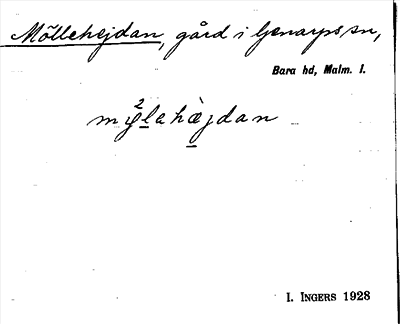 Möllehejdan, gård i Genarps sn,
Bara hd, Malm. l.
mø̀²lehæ̀jdan
I. INGERS 1928